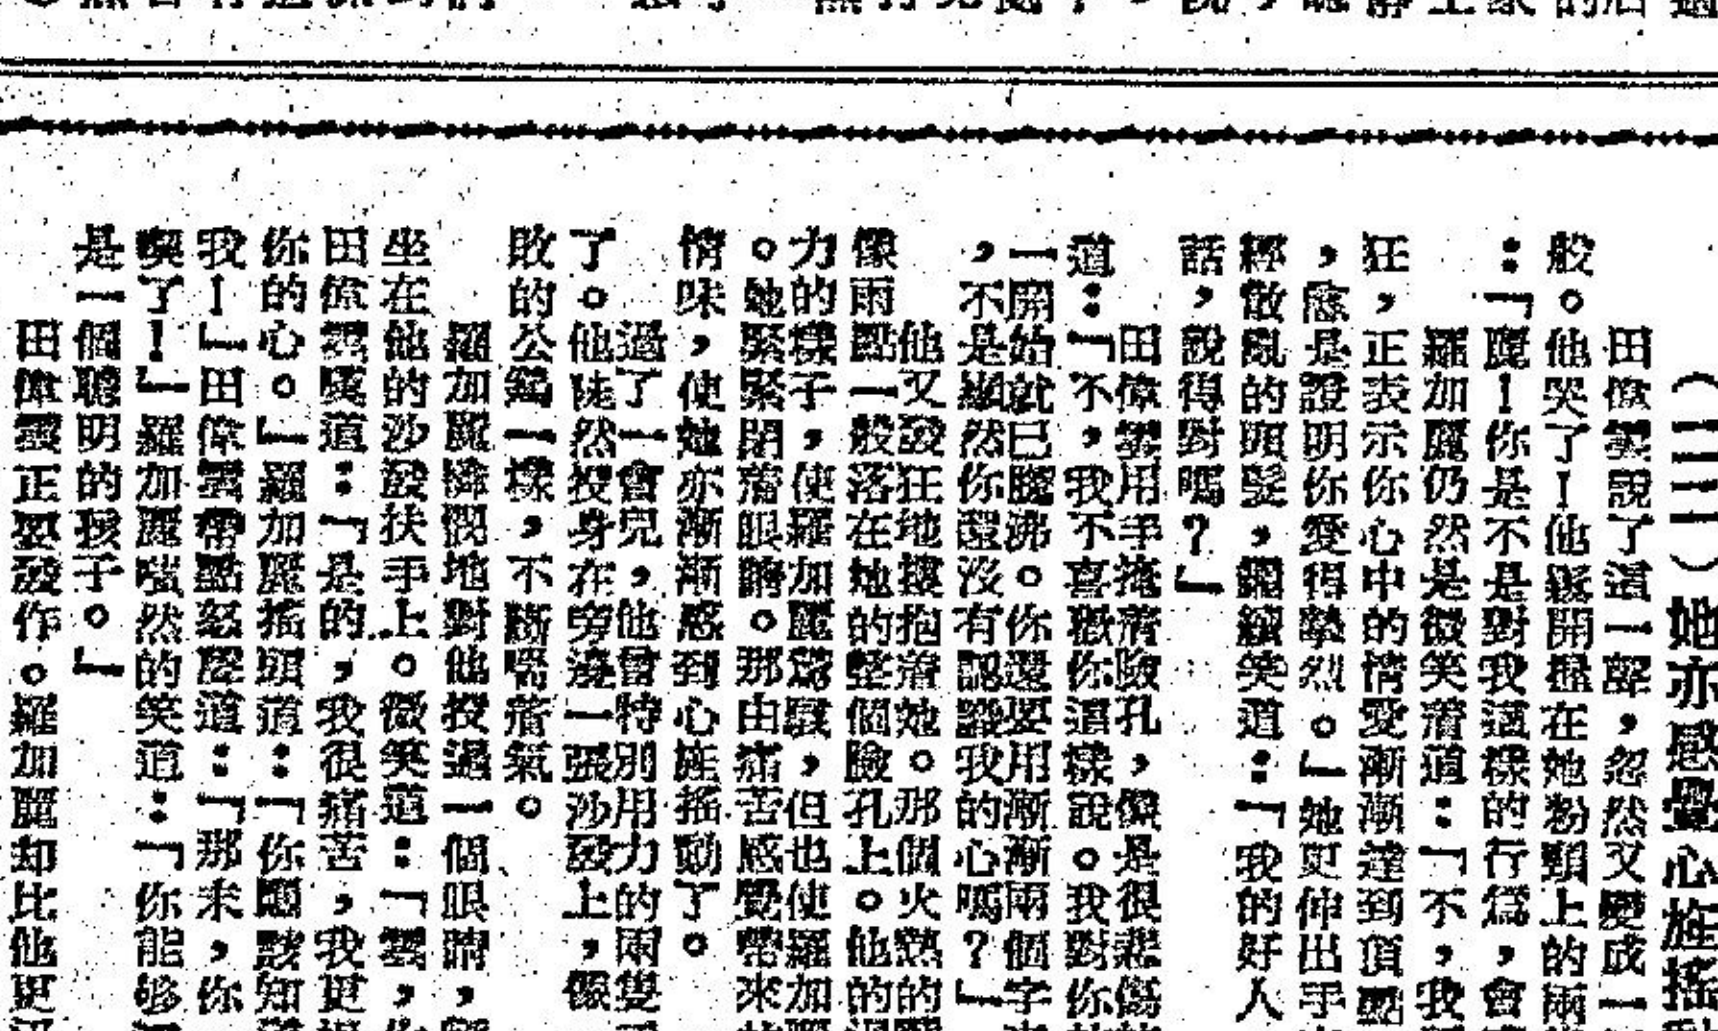 (二二)她亦感覺心旌搖
田偉雲說了這一聲，忽然又變成一
般。他哭了！他離開搵在她粉頸上的兩
：「麗！你是不是對我這樣的行爲，會
羅加麗仍然是微笑着道：「不，我
狂，正表示你心中的情愛漸漸達到頂點
，應是證明你愛得摯烈。」她更伸出手
經散亂的頭髮，繼續笑道：「我的好人
話，說得對嗎？」
田偉雲用手掩着臉孔，像是很悲傷
道：「不，我不喜歡你這樣說。我對你
一開始就已騰沸。你還要用漸漸兩個字
，不是顯然你還沒有認識我的心嗎？」
他又發狂地摟抱着她。那個火熱的
像雨點一般落在她的整個臉孔上。他的
力的樣子，使羅加麗驚駭，但也使羅加
。她緊緊閉着眼睛。那由痛苦感覺帶來
情味，使她亦漸漸感到心旌搖動了。
過了一會兒，他曾特別用力的兩雙
了。他陡然投身在旁邊一張沙發上，像
敗的公鷄一樣，不斷喘着氣。
羅加麗憐憫地對他投過一個眼睛，
坐在他的沙發扶手上。微笑道：「雲，
田偉雲嘆道：「是的，我很痛苦，我更
你的心。」羅加麗搖頭道：「你應該知
我！」田偉雲帶點怒聲道：「那末，你
喫了！」羅加麗嗤然的笑道：「你能够
是一個聰明的孩子。」
田偉雲正要發作。羅加麗却比他更